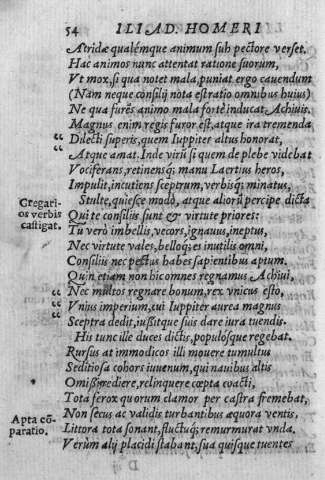 54 ILIAD. HOMERI
Atridæ qualémque animum sub pectore verset.
Hac animos nunc attentat ratione suorum,
Vt mox, si qua notet mala, puniat ergo cauendum
(Nam neque consilij nota est ratio omnibus huius)
Ne qua furẽs animo mala fortè inducat Achiuis.
Magnus enim regis furor est, atque ira tremenda
“ Dilecti superis, quem Iuppiter altus honorat,
“ Atque amat. Inde virũ si quem de plebe videbat
Vociferans, retinensq; manu Laertius heros,
Impulit, incutiens sceptrum, verbisq; minatus,
Gregarios verbis castigat.
Stulte, quiesce modò, atque aliorũ percipe dicta
Qui te consiliis sunt & virtute priores:
Tu verò imbellis, vecors, ignauus, ineptus,
Nec virtute vales, belloq; es inutilis omni,
Consiliis nec pectus habes sapientibus aptum.
Quin etiam non hic omnes regnamus Achiui,
“ Nec multos regnare bonum, rex vnicus esto,
“ Vnius imperium, cui Iuppiter aurea magnus
“ Sceptra dedit, iußitque suis dare iura tuendis.
His tunc ille duces dictis, populosque regebat.
Rursus at immodicos illi mouere tumultus
Seditiosa cohors iuuenum, qui nauibus altis
Omißis rediere, relinquere cœpta coacti,
Tota ferox quorum clamor per castra fremebat,
Apta cõparatio.
Non secus ac validis turbantibus æquora ventis,
Littora tota sonant, fluctuq; remurmurat vnda.
Verùm alij placidi stabant, sua quisque tuentes
D